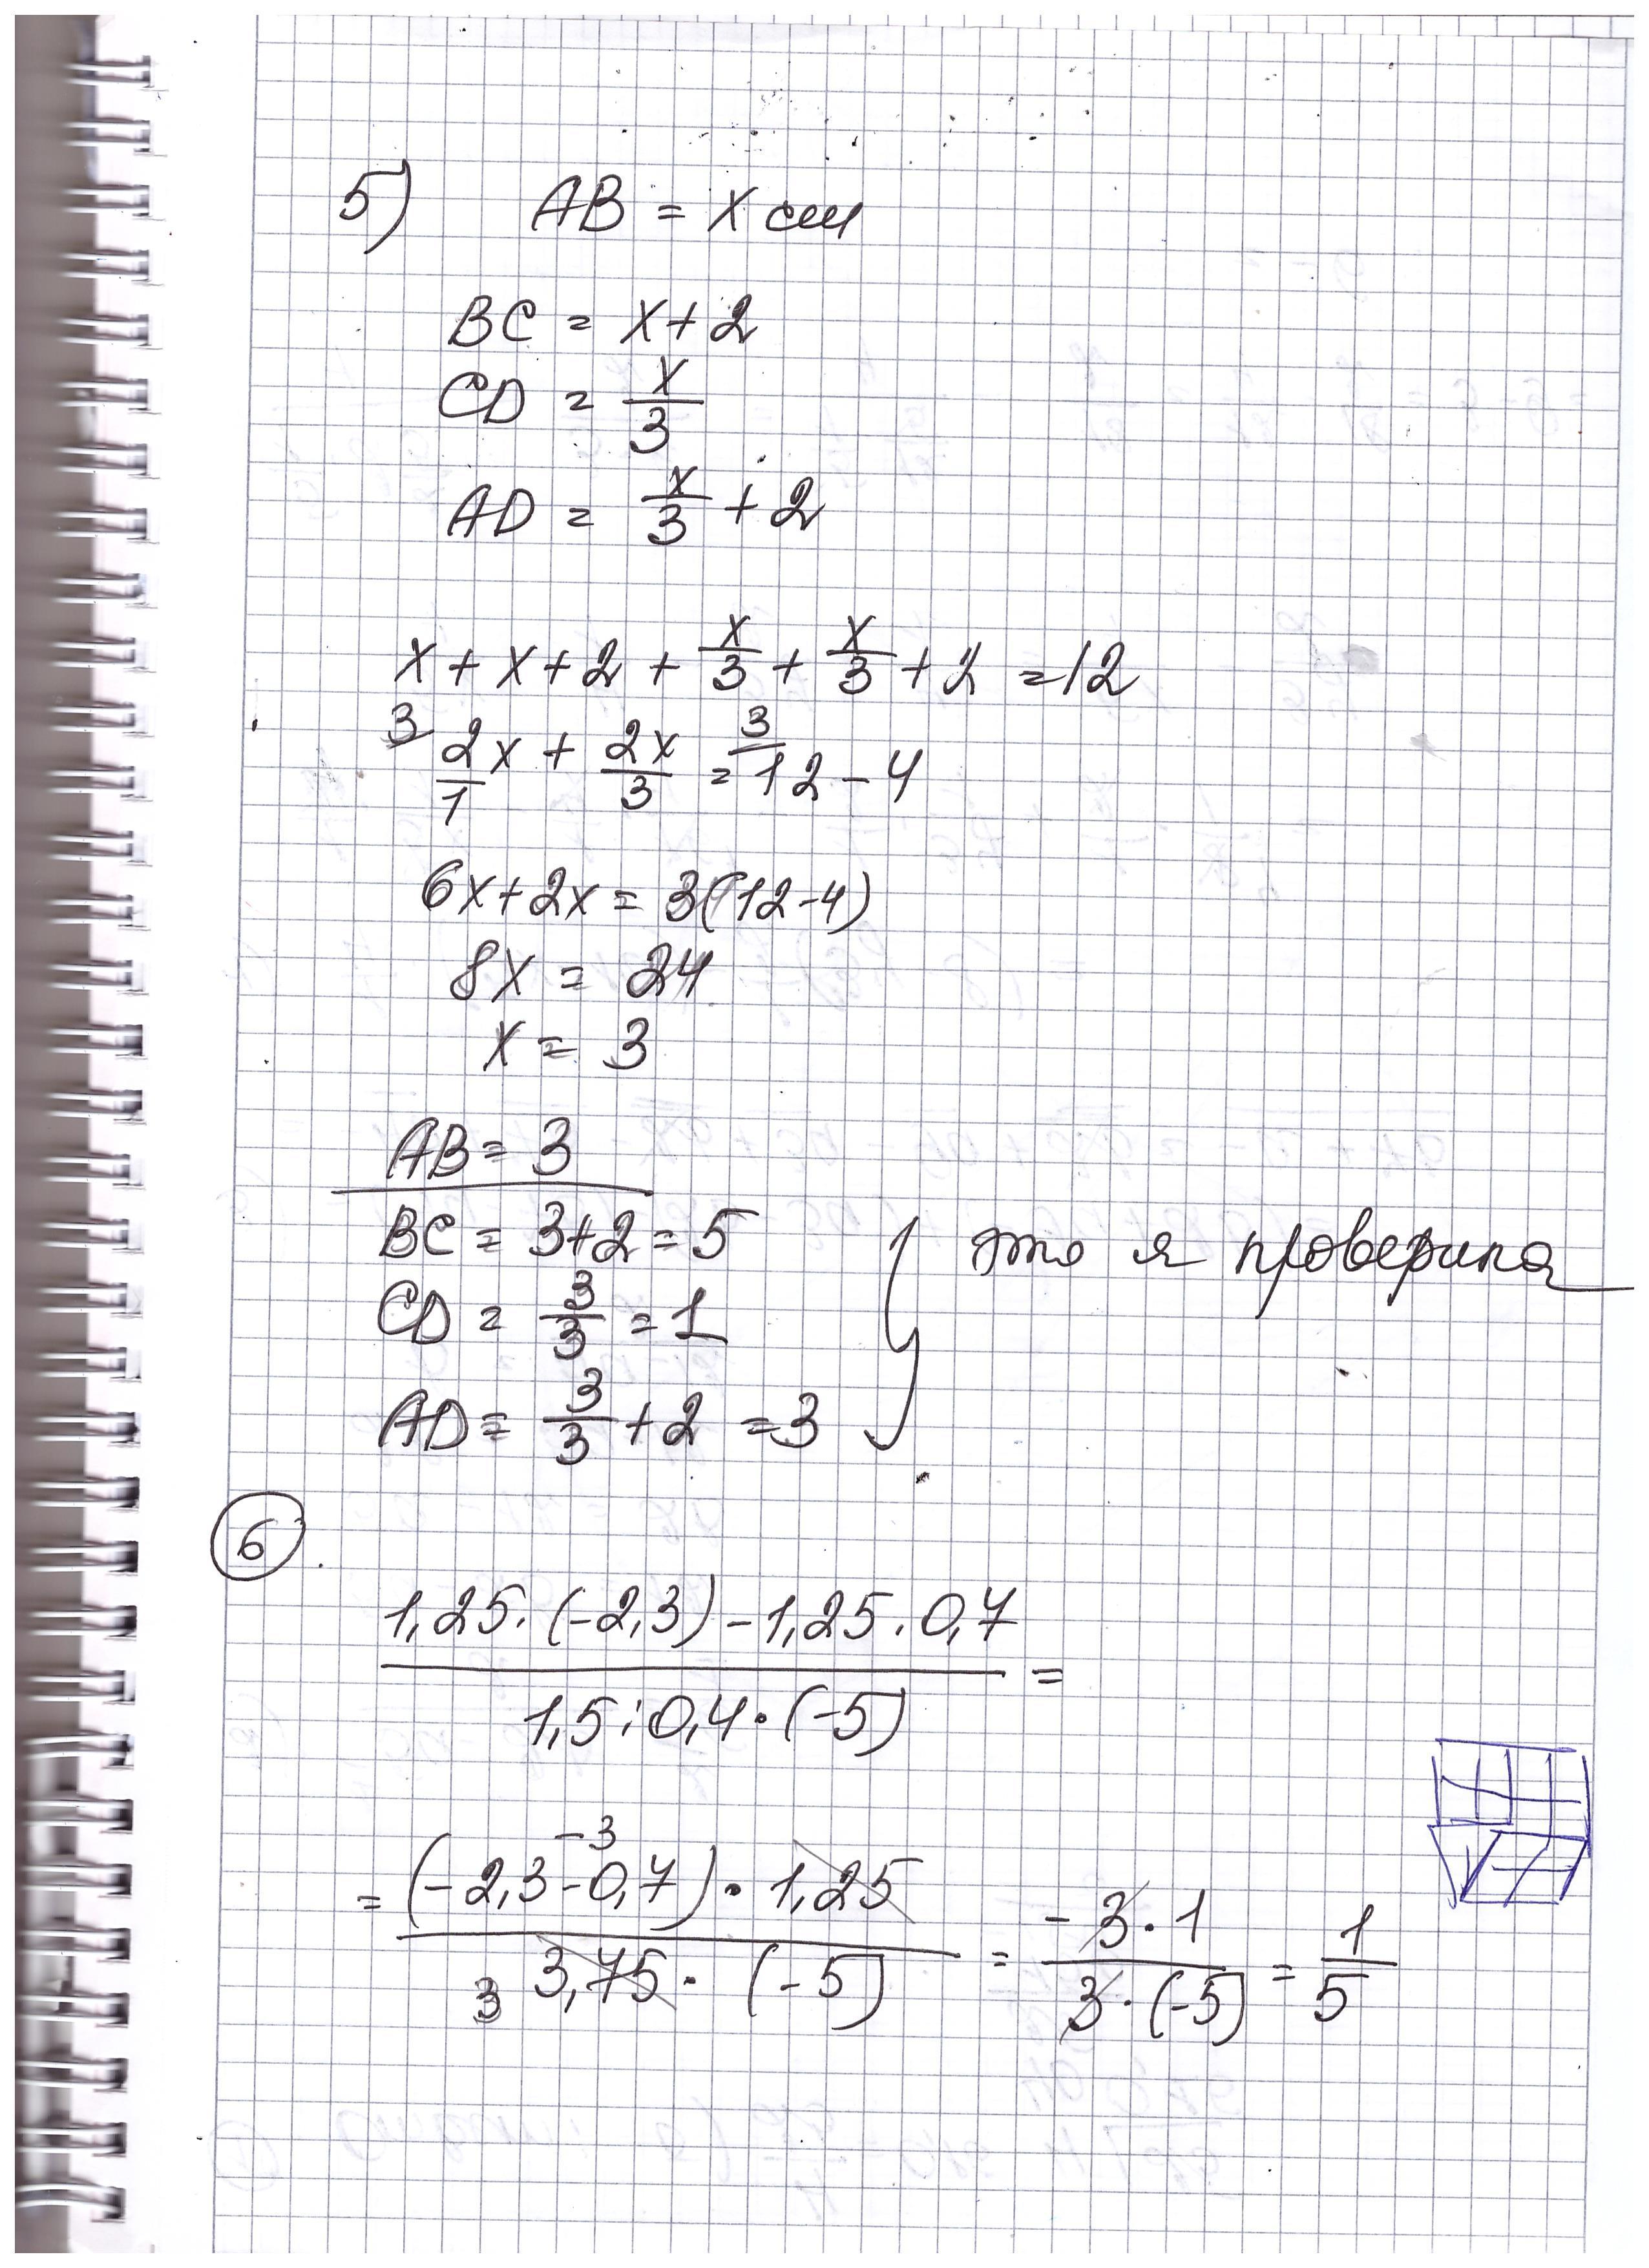 5) AB = x см
BC = x+2
CD = x/3
AD = x/3 + 2
x + x + 2 + x/3 + x/3 + 2 = 12
3 2/1 x + 2x/3 = 3 12 - 4
6x + 2x = 3(12-4)
8x = 24
x = 3
AB = 3
BC = 3+2 = 5
CD = 3/3 = 1
AD = 3/3 + 2 = 3
это я проверила
6
1,25·(-2,3) - 1,25·0,7
1,5:0,4·(-5)
=
-3
= (-2,3-0,7)·1,25 / 3 3,75·(-5) = -3·1 / 3·(-5) = 1/5